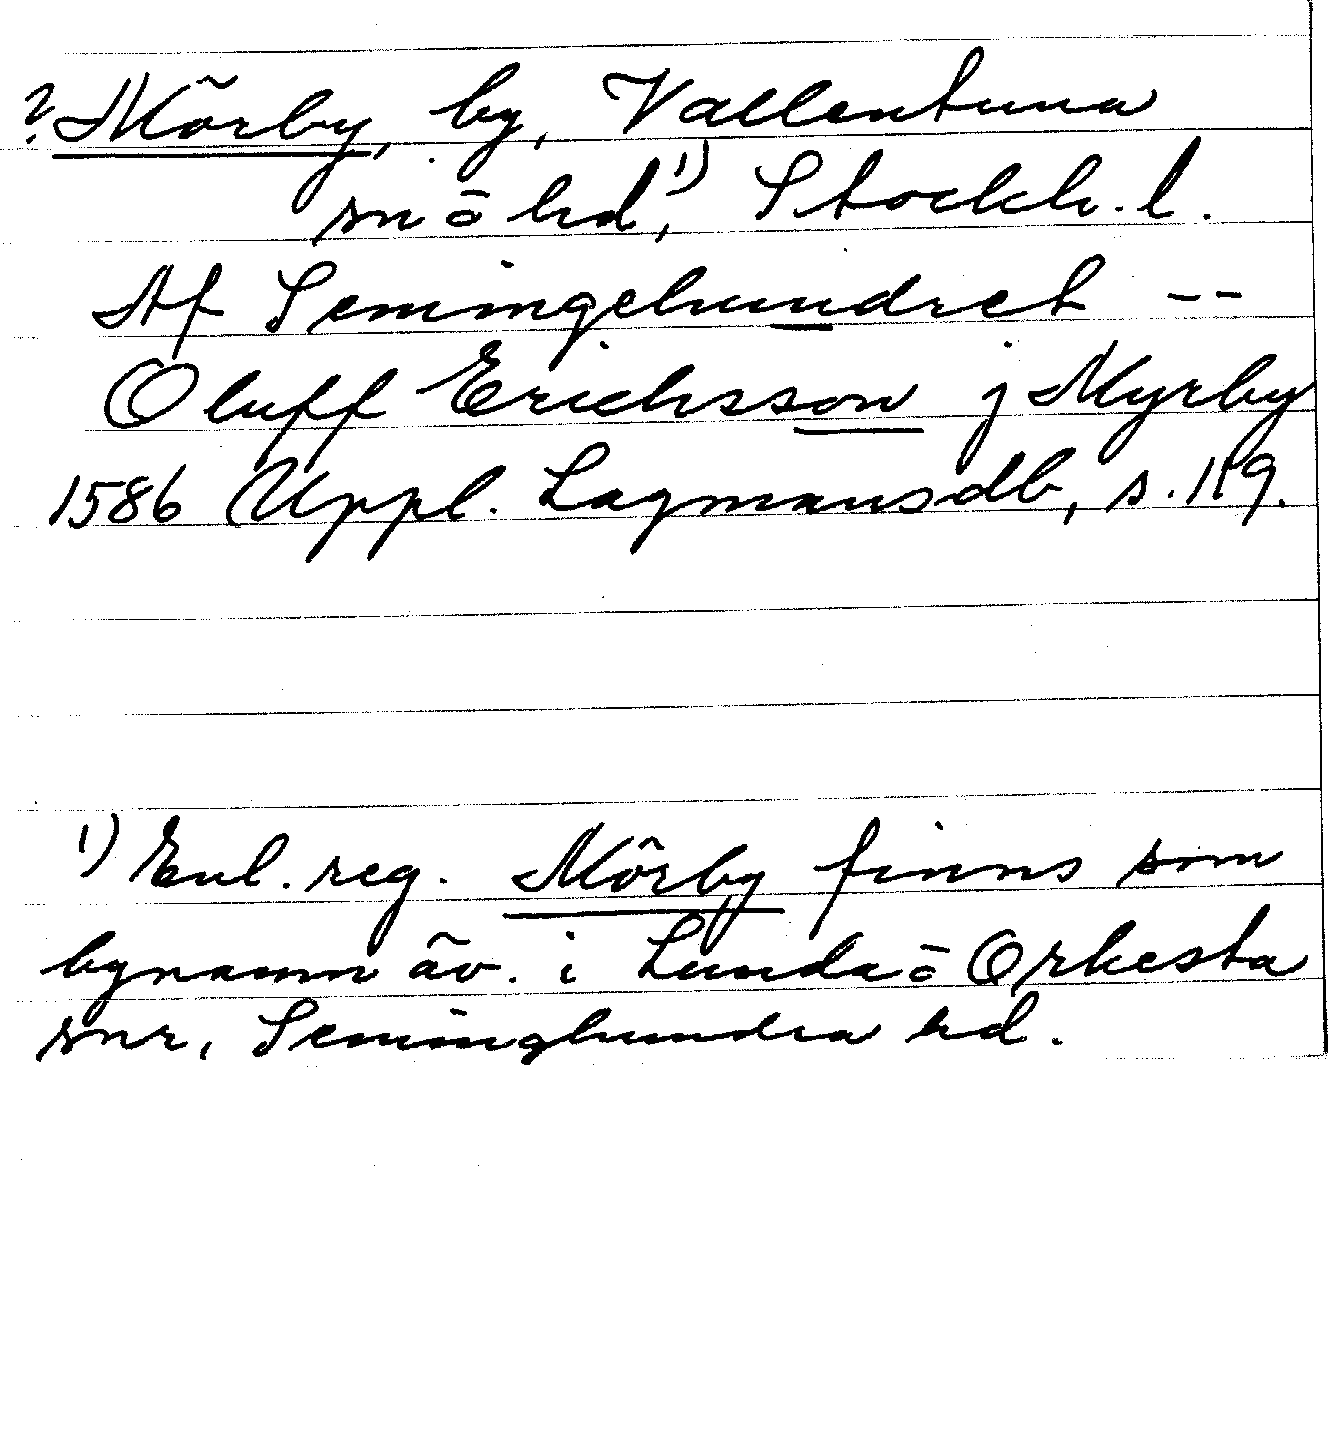 ? Mörby, by, Vallentuna
sn ō hd,¹) Stockh. l.
Af Semingehundret --
Oluff Erichsson j Myrby
1586 Uppl. Lagmansdb, s. 119.
¹) Enl. reg. Mörby finns som
bynamn äv. i Lunda ō Orkesta
snr, Seminghundra hd.